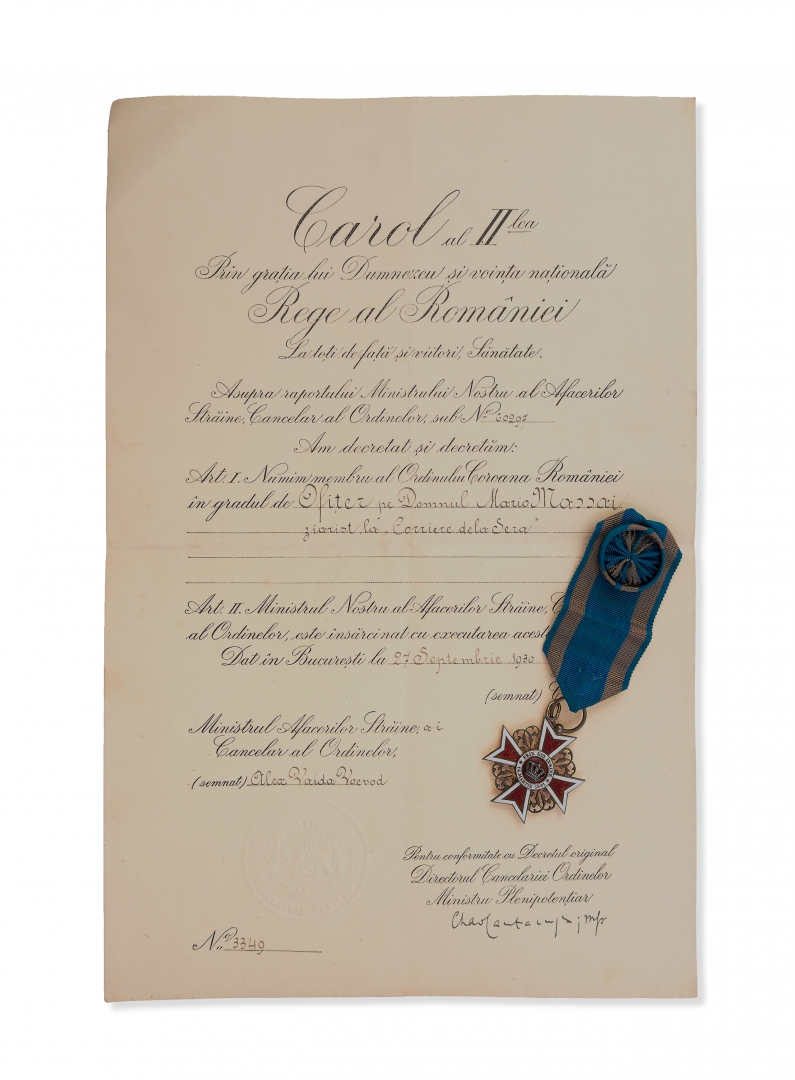 Carol al II lea
Prin grația lui Dumnezeu și voința națională
Rege al României
La toți de față și viitori, Sănătate.
Asupra raportului Ministrului Nostru al Afacerilor
Străine, Cancelar al Ordinelor, sub No. 60297
Am decretat și decretăm:
Art: I. Numim membru al Ordinului Coroana României
în gradul de Ofițer pe Domnul Mario Massai
ziarist la „Corriere dela Sera”
Art: II. Ministrul Nostru al Afacerilor Străine,
al Ordinelor, este însărcinat cu executarea
Dat în București la 27 Septembrie 1930
(semnat)
Ministrul Afacerilor Străine, a i
Cancelar al Ordinelor,
(semnat) Alex Vaida Voevod
Pentru conformitate cu Decretul original
Directorul Cancelariei Ordinelor
Ministru Plenipotențiar
No. 3349